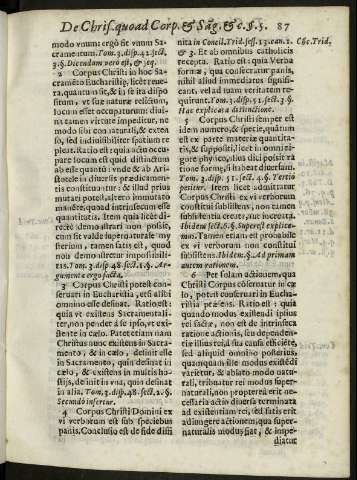 De Chris. quoad Corp. & Sāg. & c. §. 5. 87
modo vnum ergo sit vnum Sa-
cramentum. Tom. 3. disp. 42. sect.
3. §. Dicendum vero est, & seq.
2 Corpus Christi in hoc Sa-
cramēto Eucharistię, licet vere-
ra, quantum sit, & in se ita dispo
situm, vt suæ naturę relictum,
locum esset occupaturum: diui
na tamen virtute impeditur, ne
modo sibi con naturali, & exten
so, sed indiuisibiliter spatium re
pleat. Ratio est: quia actu occu-
pare locum est quid distinctum
ab esse quanto: vnde & ab Ari-
stotele in diuersis prædicamen-
tis constituuntur: & illud prius
mutari potest, altero immutato
manēte, quod intrinsecum esse
quantitatis. Item quia licet di-
recte demonstrari non possit,
cum sit valde supernaturale my
sterium, tamen satis est, quod
non demonstretur impossibi-
lis. Tom. 3. disp. 48. sect. 1. §. Ar-
gumenta ergo facta.
3 Corpus Christi potest con-
seruari in Eucharistia, etsi alibi
omnino esse desinat. Ratio est:
quia vt existens Sacramentali-
ter, non pendet à se ipso, vt exi-
stente in cælo. Patet etiam nam
Christus nunc existens in Sacra-
mento, & in cælo, desinit esse
in Sacramento, quin desinat in
cælo, & existens in multis ho-
stijs, desinit in vna, quin desinat
in alia. Tom. 3. disp. 48. sect. 2. §.
Secundò infertur.
4 Corpus Christi Domini ex
vi verborum est sub speciebus
panis. Conclusio est de fide diffi
nita in Concil. Trid. sess. 13. can. 1. Cōc. Trid.
& 3. sit ab omnibus catholicis
recepta. Ratio est: quia Verba
formæ, qua consecratur panis,
nihil aliud immediatus signifi-
cant, vel ad suam veritatem re-
quirunt. Tom. 3. disp. 51. sect. 3. §.
Hac explicata distinctione.
5 Corpus Christi semper est
idem numero, & specie, quātum
est ex parte materiæ quantita-
tis, & suppositi, licet in omni ri-
gore physico, plus dici possit ra
tione formę, si habeat diuersam.
Tom. 3. disp. 51. sect. 4. §. Tertio
petitur. Item licet admittatur
Corpus Christi ex vi verborum
constitui subsistens, non tamen
subsistentia creata, aut increata.
Ibidem sect. 5. §. Superest explice-
mus. Tamen etiam est probabile
ex vi verborum non constitui
subsistens. Ibidem. §. Ad primam
autem rationem.
6 Per solam actionem, qua
Christi Corpus cōseruatur in cæ
lo, potest conseruari in Eucha-
ristia præsens. Ratio est: quia
quando modus existendi ipsius
rei fixæ, non est de intrinseca
ratione actionis, siue dependen-
tiæ illius rei, & à sua causa efficiēte,
sed aliquid omnino posterius,
quamquam ille modus existēdi
varietur, & ablato modo natu-
rali, tribuatur rei modus super
naturalis, non propterea erit ne-
cessaria actio diuersa terminata
ad existentiam rei, sed satis erit
adiungere actionem, qua super-
naturalis modus fiat, & impe-
diatur